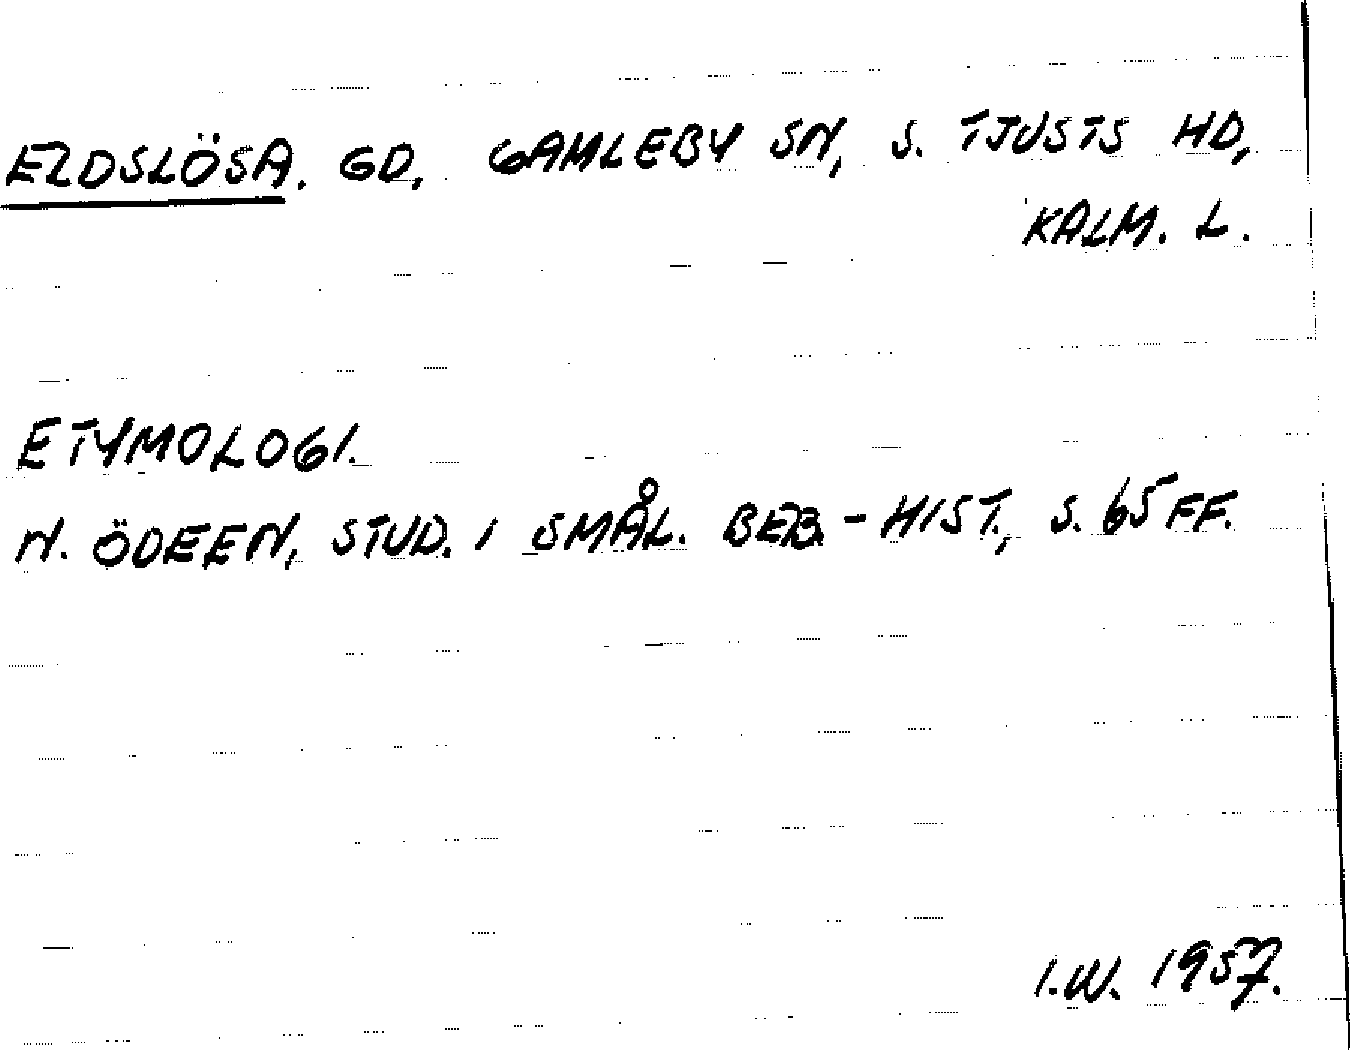 ELDSLÖSA. GD, GAMLEBY SN, S. TJUSTS HD,
KALM. L.
ETYMOLOGI.
N. ÖDEEN, STUD. I SMÅL. BEB.-HIST., S. 65 FF.
I.W. 1957.